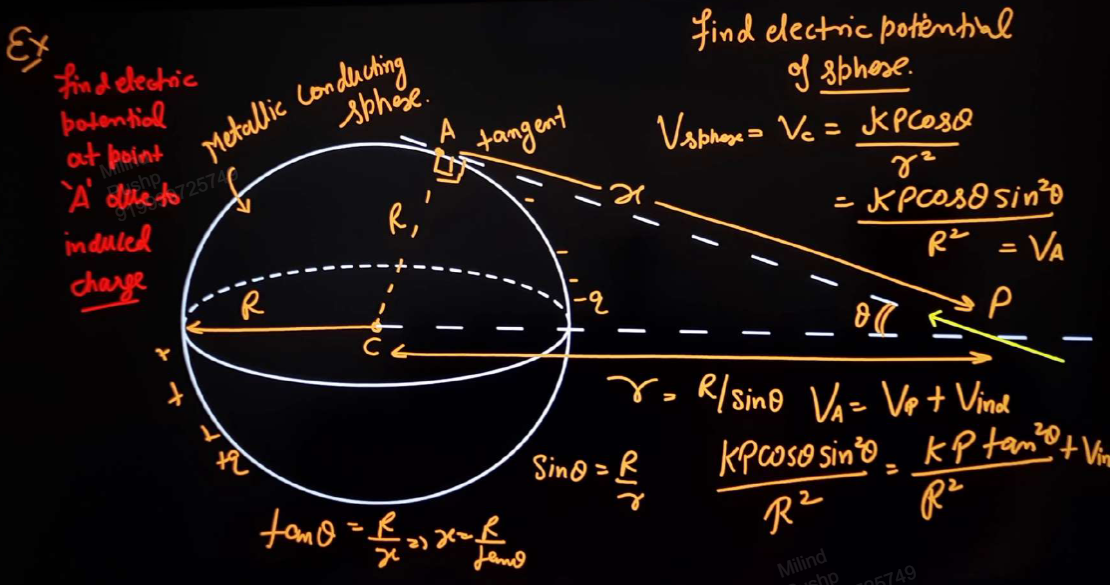 Ex
find electric
potential
at point
'A' due to
induced
charge
Metallic conducting
sphere.
A
tangent
x
R,
R
C
-q
+q
θ
P
find electric potential
of sphere.
Vsphere = Vc = KPcosθ / r²
= KPcosθ sin²θ / R² = VA
r = R/sinθ
VA = VP + Vind
sinθ = R/r
KPcosθ sin²θ / R² = KP tan²θ / R² + Vin
tanθ = R/x => x = R/tanθ
Milind
Pushp
Milind